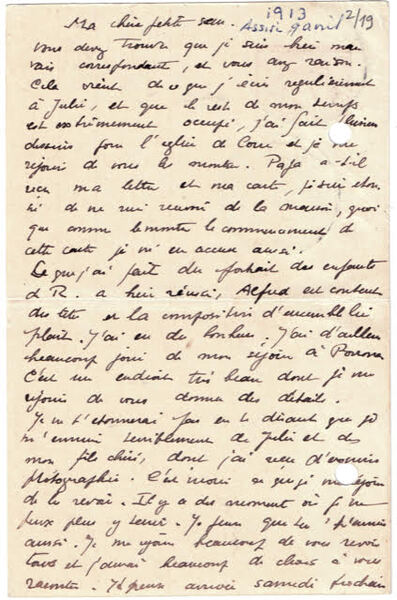 1913
Ma chère petite sœur. Assise 9 avril 2/19
vous devez trouver que je suis bien mau
vais correspondant, et vous avez raison.
Cela vient de ce que j'écris régulièrement
à Juli, et que le reste de mon temps
est extrêmement occupé, j'ai fait
dessins pour l'église de et je me
réjouis de vous les montrer. Papa a-t-il
reçu ma lettre et ma carte, je suis éton
né de ne rien recevoir de la maison, quoi
que comme le montre le commencement de
cette carte je m'en accuse aussi.
Ce que j'ai fait du portrait des enfants
d R. a bien réussi, Alfred est content
des têtes et la composition d'ensemble lui
plait. J'ai eu du bonheur. J'ai d'ailleurs
beaucoup joui de mon séjour à
C'est un endroit très beau dont je me
réjouis de vous donner des détails.
Je ne t'étonnerai pas en te disant que je
m'ennuie terriblement de Juli et de
mon fils chéri, dont j'ai reçu
photographies. C'est inouï ce que je me réjouis
de le revoir. Il y a des moments où je ne
peux plus y tenir. Je pense que tu t'ennuies
aussi. Je me réjouis beaucoup de vous revoir
tous et j'aurai beaucoup de choses à vous
raconter. Je pense arriver samedi prochain